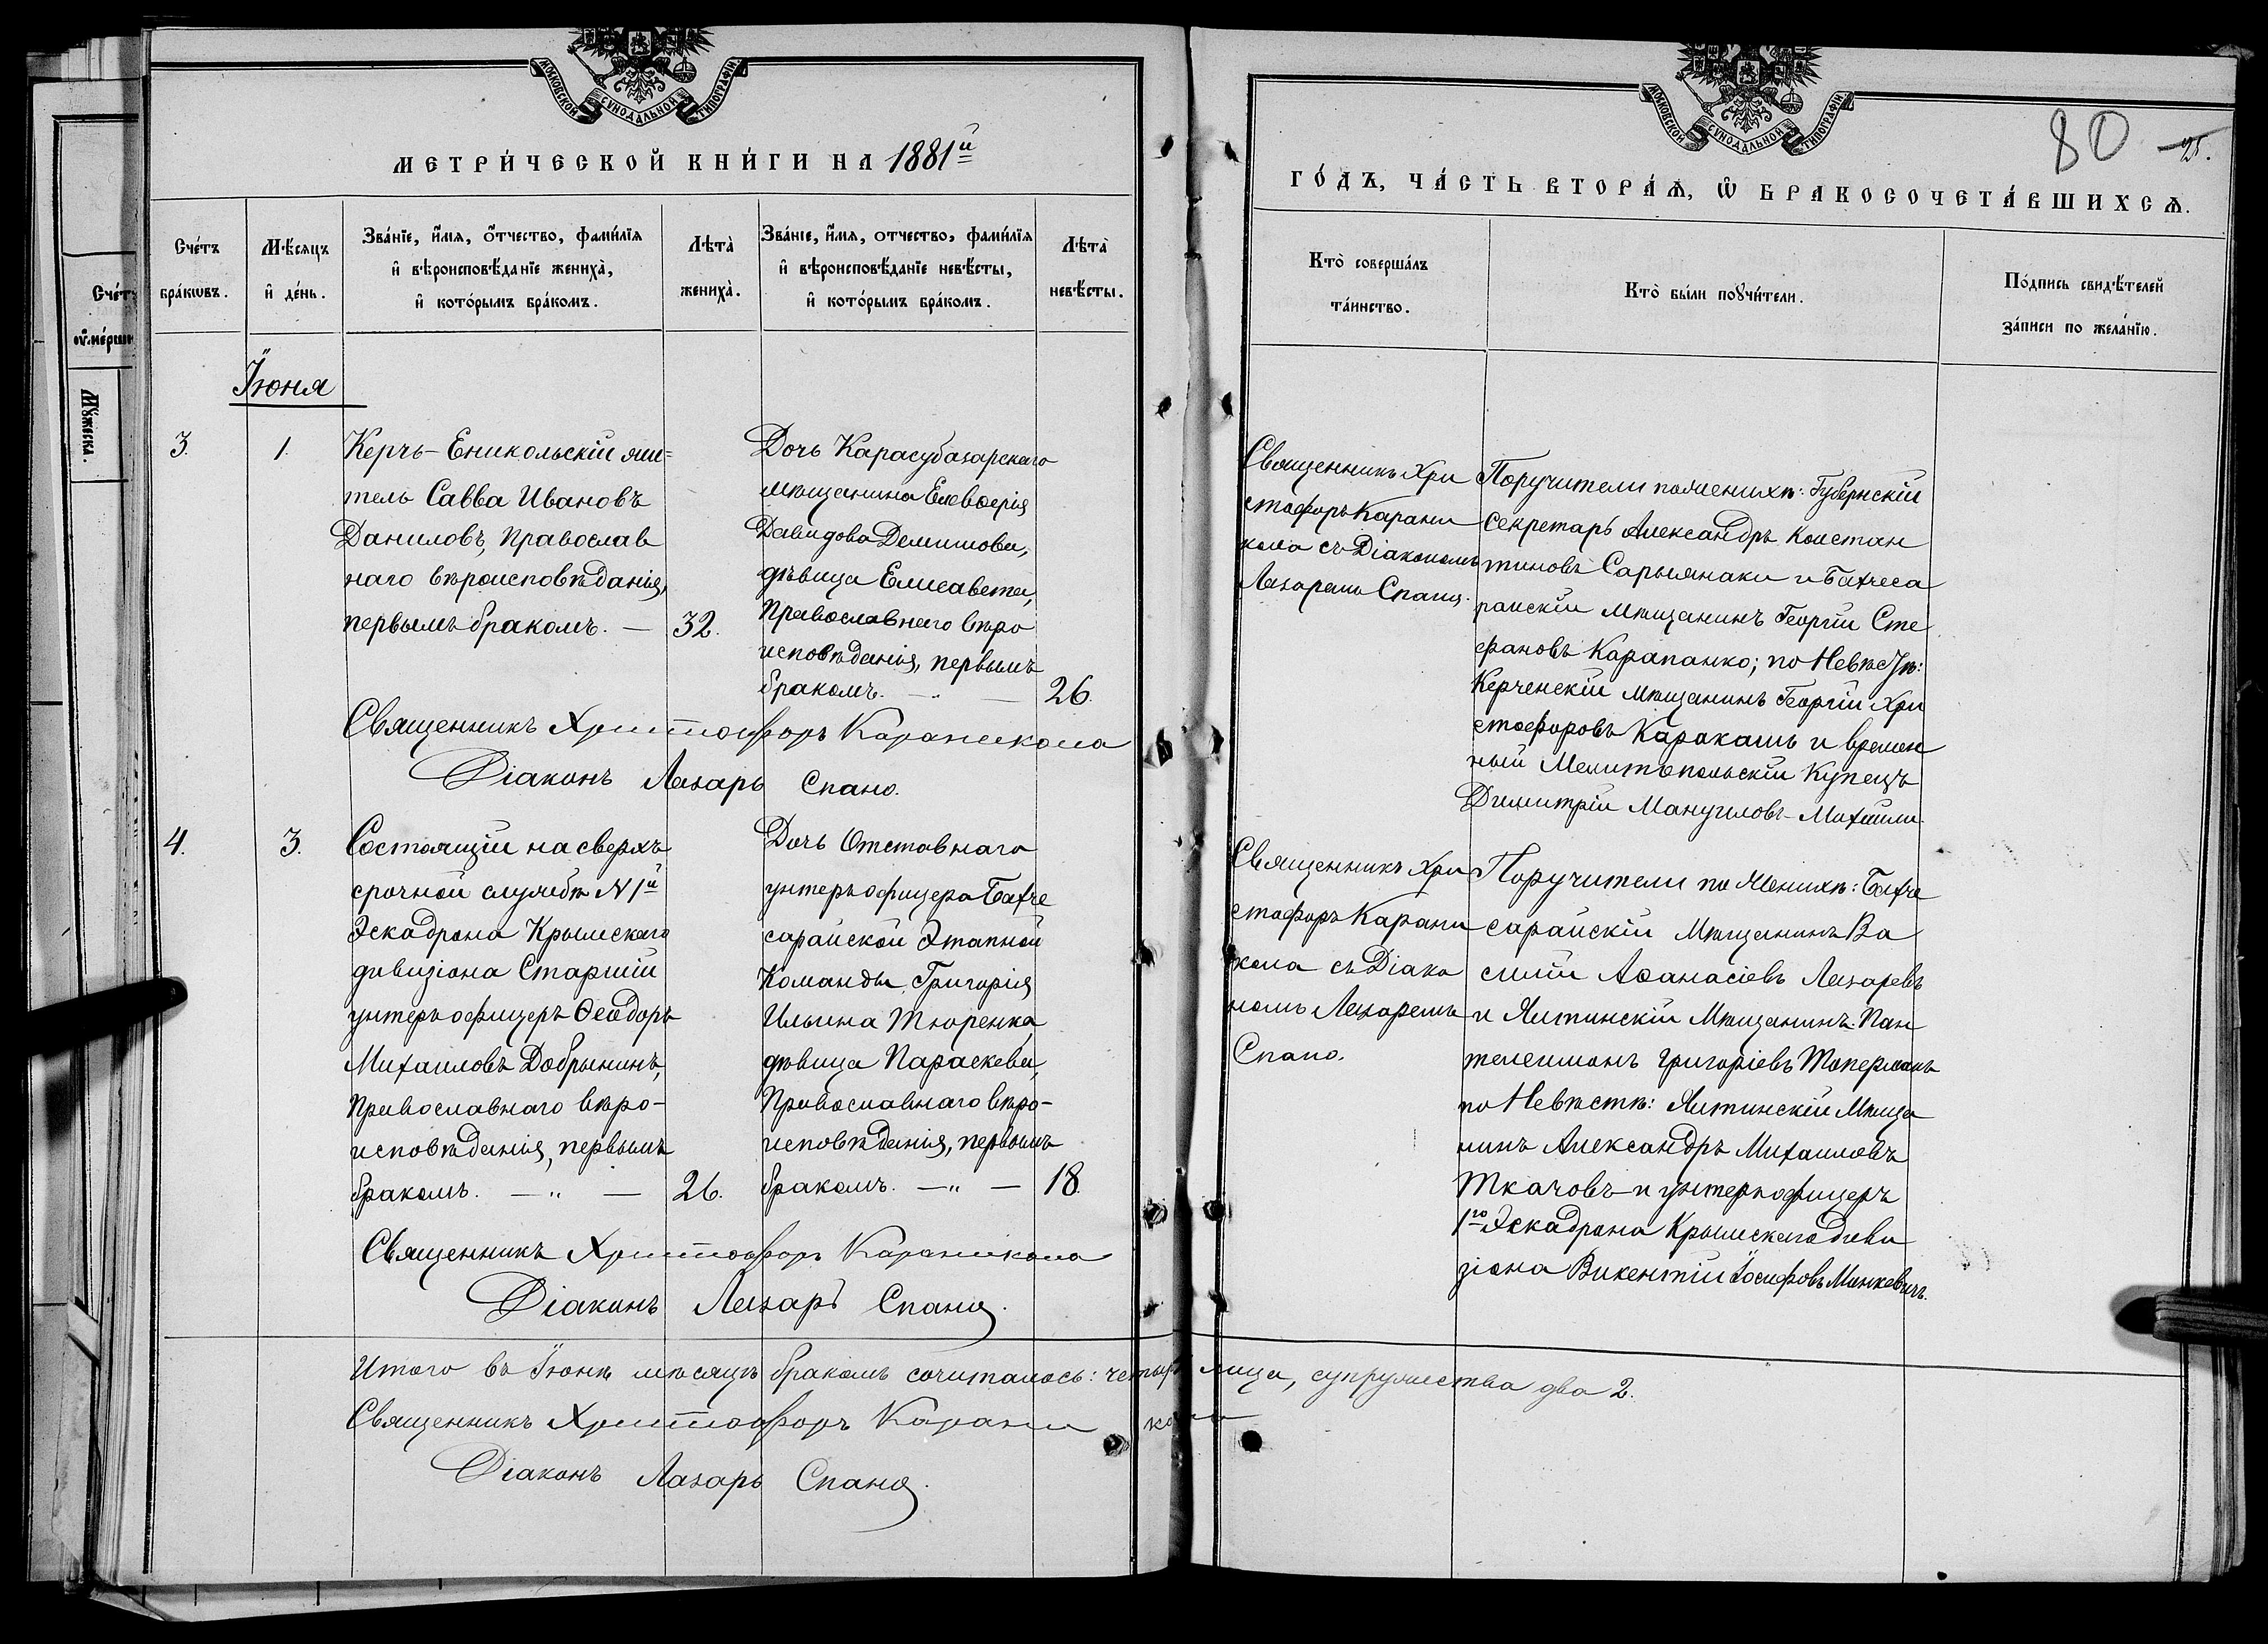 МОСКОВСКОЙ СѴНОДАЛЬНОЙ ТИПОГРАФІИ
МЕТРИ́ЧЕСКОЙ КНИ́ГИ НА 1881й
Сче́тъ
бра́кωвъ.
Мѣ́сяцъ
и҆ де́нь.
Зва́нїе, и҆́мѧ, ѻ҆́тчество, фами́лїѧ
и҆ вѣроисповѣ́данїе жениха̀,
и҆ кото́рымъ бра́комъ.
Лѣта̀
жениха̀.
Зва́нїе, и҆́мѧ, отчество, фами́лїѧ
и҆ вѣроисповѣ́данїе невѣ́сты,
и҆ кото́рымъ бра́комъ.
Лѣта̀
невѣ́сты.
Іюня
3.
1.
Керчь-Еникольскій жи=
тель Савва Ивановъ
Даниловъ, Православ
наго вѣроисповѣданія,
первымъ бракомъ. —
32.
Дочь Карасубазарскаго
мѣщанина Елевѳерія
Давидова
дѣвица Елисавета,
Православнаго вѣро
исповѣданія, первымъ
бракомъ. — „ —
26.
Священникъ Христофоръ Караникола
Діаконъ Лазарь Спано.
4.
3.
Состоящій на сверхъ
срочной службѣ N 1й
Эскадрона Крымскаго
дивизіона Старшій
унтеръ офицеръ Ѳеодоръ
Михаиловъ Добрынинъ,
Православнаго вѣро-
исповѣданія, первымъ
бракомъ. — „ —
26.
Дочь Отставнаго
унтеръ офицера Бахче
сарайской Этапной
Команды Григорія
Ильина Тюренка
дѣвица Параскева,
Православнаго вѣро-
исповѣданія, первымъ
бракомъ. — „ —
18.
Священникъ Христофоръ Караникола
Діаконъ Лазарь Спано.
Итого въ Іюнѣ мѣсяцѣ бракомъ сочиталось: четыре лица, супружества два 2.
Священникъ Христофоръ Караникола
Діаконъ Лазарь Спано.
МОСКОВСКОЙ СѴНОДАЛЬНОЙ ТИПОГРАФІИ
80 25.
ГО́ДЪ, ЧА́СТЬ ВТОРА́Ѧ, Ѡ҆ БРАКОСОЧЕТА́ВШИХСѦ.
Кто̀ соверша́лъ
та́инство.
Кто̀ бы́ли поꙋчи́тели.
По́дпись свидѣ́телей
за́писи по жела́нїю.
Священникъ Хри
стофоръ Карани
кола съ Діакономъ
Лазаремъ Спано.
Поручители по женихѣ: Губернскій
Секретарь Александръ Констан
тиновъ Сарыянаки и Бахчеса
райскій Мѣщанинъ Георгій Сте
фановъ Карапанко; по Невѣстѣ:
Керченскій мѣщанинъ Георгій Хри
стофоровъ Каракашъ и времен
ный Мелитопольскій Купецъ
Димитрій Мануиловъ-Михаили.
Священникъ Хри
стофоръ Карани
кола съ Діако
номъ Лазаремъ
Спано.
Поручители по Женихѣ: Бахче
сарайскій Мѣщанинъ Ва
силій Аѳанасіевъ Лазаревъ
и Ялтинскій Мѣщанинъ Пан
телеимонъ Григоріевъ
по Невѣстѣ: Ялтинскій Мѣща
нинъ Александръ Михаиловъ
Ткачовъ и унтеръ офицеръ
1го Эскадрона Крымскаго диви
зіона Викентій Іосифовъ Минкевичъ.
Счетъ
Мꙋжеска.